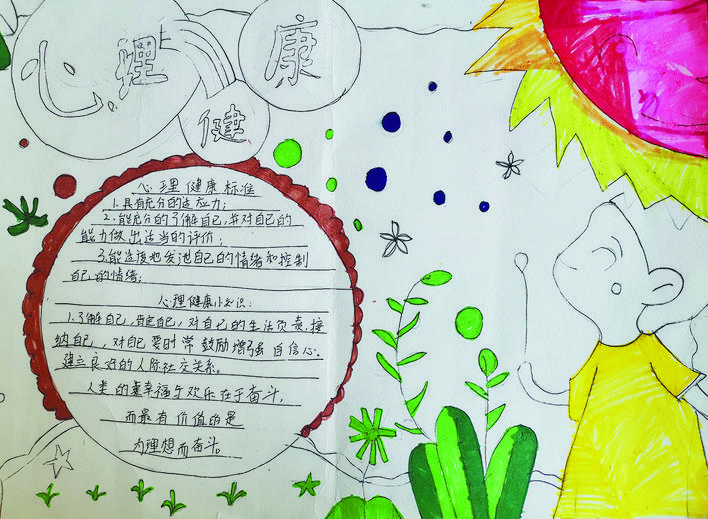 心理健康
心理健康标准
1.具有充分的适应力;
2.能充分的了解自己,并对自己的
能力做出适当的评价;
3.能适度地发泄自己的情绪和控制
自己的情绪;
心理健康小知识:
1.了解自己,肯定自己,对自己的生活负责,接
纳自己,对自己要时常鼓励增强自信心.
建立良好的人际社交关系。
人类的幸福与欢乐在于奋斗,
而最有价值的是
为理想而奋斗。